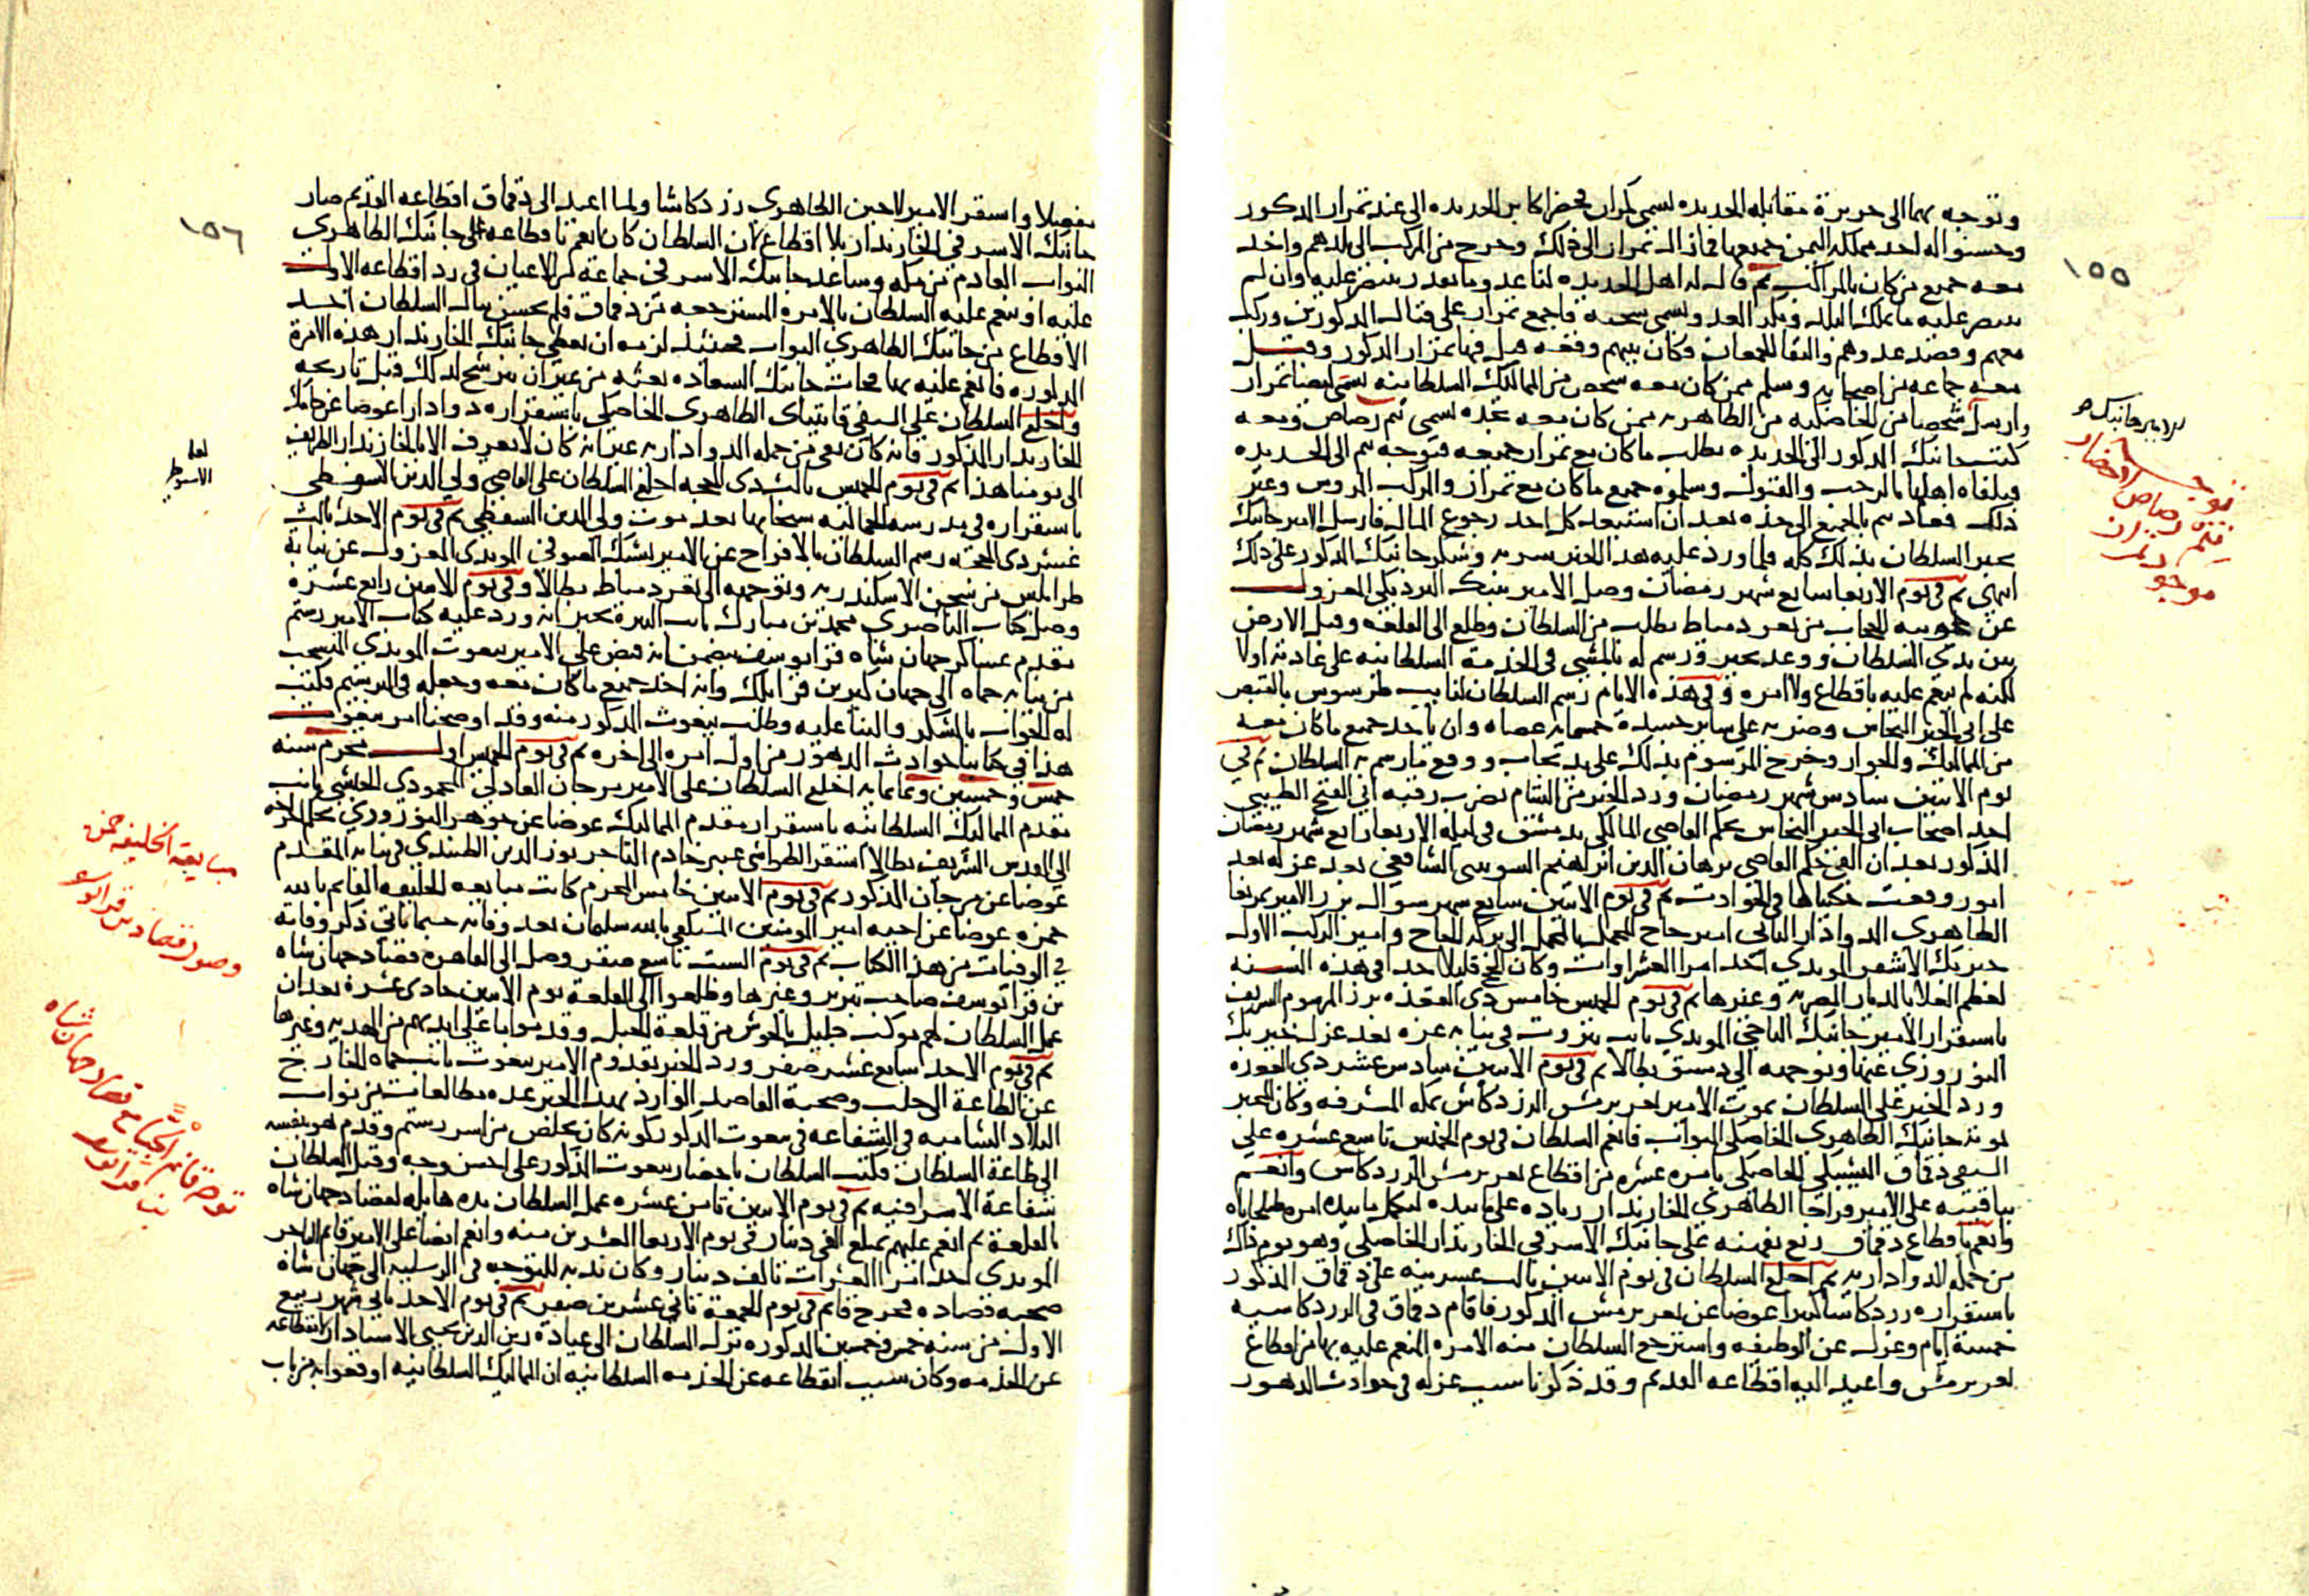 ١٥٥
وتوجه بهما الى جزيرة مقابله الحديده تسمى كمران فحضر اكابر الحديده الى عند تمراز المذكور
وحسنوا له اخذ مملكه اليمن جميعها فمال تمراز الى ذلك وخرج من المركب الى بلدهم واخذ
معه جميع من كان بالمراكب ثم قال له اهل الحديده لنا عدو ما نقدر ننتصر عليه وان لم
ننتصر عليه ما نملك البلاد وبلد العدو تسمى فاجمع تمراز على قتال المذكورين وركب
معهم وقصد عدوهم والتقا الجمعان وكان بينهم وقعه هايله قتل فيها تمراز المذكور وقتل
معه جماعه من اصحابه وسلم ممن كان معه شخص من المماليك السلطانيه يسمى ايضا تمراز
وارسل شخصا من الخاصكيه من الظاهريه ممن كان معه بجده اسمه تنم رصاص ومعه
كتب جانبك المذكور الى الحديده بطلب ما كان مع تمراز جميعه فتوجه تنم الى الحديده
فتلقاه اهلها بالرحب والقبول وسلموه جميع ما كان مع تمراز والمركب المروس وغير
ذلك فعاد تنم بالجميع الى جده بعد ان استبعد كل احد رجوع المال فارسل الامير جانبك
يخبر السلطان بذلك كله فلما ورد عليه هذا الخبر سر به وشكر جانبك المذكور على ذلك
انتهى ثم في يوم الاربعا سابع شهر رمضان وصل الامير تنبك البردبكي المعزول
عن حجوبيه الحجاب من ثغر دمياط بطلب من السلطان وطلع الى القلعه وقبل الارض
بين يدي السلطان ووعد بخير ورسم له بالمشي في الخدمة السلطانيه على عادته اولا
لكنه لم ينعم عليه باقطاع ولا امره وفي هذه الايام رسم السلطان لنايب طرسوس بالقبض
على ابي الخير النحاس وضربه على ساير جسده خمسمايه عصاه وان ياخذ جميع ما كان معه
من المماليك والجوار وخرج المرسوم بذلك على يد نجاب ووقع ما رسم به السلطان ثم في
يوم الاثنين سادس شهر رمضان ورد الخبر من الشام بضرب رقبه ابي الفتح الطيبي
احد اصحاب ابي الخير النحاس بحكم القاضي المالكي بدمشق في ليله الاربعا رابع شهر رمضان
المذكور بعد ان الغى حكم القاضي برهان الدين ابراهيم السوبيني الشافعي بعد عزله بعد
امور وقعت حكيناها في الحوادث ثم في يوم الاثنين سابع شهر شوال برز الامير تمربغا
الظاهري الدوادار الثاني امير حاج المحمل بالمحمل الى بركه الحاج وامير الركب الاول
خيربك الاشقر المويدي احد امرا العشراوات وكان الحج قليلا جدا في هذه السنه
لعظم الغلا بالديار المصريه وغيرها ثم في يوم الخميس خامس ذي القعده برز المرسوم الشريف
باستقرار الامير جانبك التاجي المويدي نايب بيروت في نيابه غزه بعد عزل خيربك
النوروزي عنها وتوجهه الى دمشق بطالا ثم في يوم الاثنين سادس عشر ذي القعده
ورد الخبر على السلطان بموت الامير تغري برمش الزردكاش بمكه المشرفه وكان المخبر
لموته جانبك الظاهري الخاصكي البواب فانعم السلطان في يوم الخميس تاسع عشره على
السيفي دقماق اليشبكي الخاصكي بامره عشره من اقطاع تغري برمش الزردكاش وانعم
بباقيه على الامير قراجا الظاهري الخازندار زياده على ما بيده ليكمل ما بيده امره طبلخاناه
وانعم باقطاع دقماق ربع تفهنه على جانبك الاشرفي الخازندار الخاصكي وهو يوم ذاك
من جمله الدواداريه ثم اخلع السلطان في يوم الاثنين ثالث عشرينه على دقماق المذكور
باستقراره زردكاشا كبيرا عوضا عن تغري برمش المذكور فاقام دقماق في الزردكاشيه
خمسة ايام وعزل عن الوظيفه واسترجع السلطان منه الامره المنعم عليه بها من اقطاع
تغري برمش واعيد اليه اقطاعه القديم وقد ذكرنا سبب عزله في حوادث الدهور
توجه
تنم رصاص لاحضار
موجود تمراز
١٥٦
مفصلا واستقر الامير لاجين الظاهري زردكاشا ولما اعيد الى دقماق اقطاعه القديم صار
جانبك الاشرفي الخازندار بلا اقطاع لان السلطان كان انعم باقطاعه على جانبك الظاهري
البواب القادم من مكه وساعد جانبك الاشرفي جماعة من الاعيان في رد اقطاعه الاول
عليه او ينعم عليه السلطان بالامره المسترجعه من دقماق فلم يحسن ببال السلطان اخذ
الاقطاع من جانبك الظاهري البواب فحينئذ لزمه ان يعطي جانبك الخازندار هذه الامرة
المذكوره فانعم عليه بها فجات جانبك السعاده بغته من غير ان يترشح لذلك قبل تاريخه
واخلع السلطان على السيفي قايتباي الظاهري الخاصكي باستقراره دوادارا عوضا عن جانبك
الخازندار المذكور فانه كان بقي من جمله الدواداريه غير انه كان لا يعرف الا بالخازندار الظريف
الى يومنا هذا ثم في يوم الخميس ثالث ذي الحجه اخلع السلطان على القاضي ولي الدين الاسيوطي
باستقراره في مدرسه الجماليه سخابها بعد موت ولي الدين السفطي ثم في يوم الاحد ثالث
عشر ذي الحجه رسم السلطان بالافراج عن الامير يشبك الصوفي المويدي المعزول عن نيابة
طرابلس من سجن الاسكندريه وتوجهه الى ثغر دمياط بطالا وفي يوم الاثنين رابع عشره
وصل كتاب الناصري محمد بن مبارك نايب البيرة يخبر انه ورد عليه كتاب الامير رستم
مقدم عساكر جهان شاه بن قرا يوسف يتضمن انه قبض على الامير بيغوت المويدي المنسحب
من نيابه حماه الى جهان كير بن قرايلك وانه اخذ جميع ما كان معه وجعله في الترسيم فكتب
له الجواب بالشكر والثنا عليه وطلب بيغوت المذكور منه وقد اوضحنا امر بيغوت
هذا في كتابنا حوادث الدهور من اول امره الى اخره ثم في يوم الخميس اول محرم سنه
خمس وخمسين وثمانمايه اخلع السلطان على الامير مرجان العادلي المحمودي الحبشي نايب
مقدم المماليك السلطانيه باستقراره مقدم المماليك عوضا عن جوهر النوروزي بحكم اخراجه
الى القدس الشريف بطالا واستقر الطواشي عنبر خادم التاجر نور الدين الطنبدي في نيابه المقدم
عوضا عن مرجان المذكور ثم في يوم الاثنين خامس المحرم كانت مبايعه الخليفه القايم بالله
حمزه عوضا عن اخيه امير المومنين المستكفي بالله سليمان بعد وفاته حسبما ياتي ذكر وفاته
في الوفيات من هذا الكتاب ثم في يوم السبت تاسع صفر وصل الى القاهره قصاد جهان شاه
بن قرا يوسف صاحب تبريز وغيرها وطلعوا الى القلعة يوم الاثنين حادي عشره بعد ان
عمل السلطان لهم موكب جليل بالحوش من قلعة الجبل وقدموا ما على ايديهم من الهديه وغيرها
ثم في يوم الاحد سابع عشر صفر ورد الخبر بقدوم الامير بيغوت نايب حماه الخارج
عن الطاعة الى حلب وصحبة القاصد الوارد بهذا الخبر عده مطالعات من نواب
البلاد الشاميه في الشفاعه في بيغوت المذكور كونه كان تخلص من اسر رستم وقدم هو بنفسه
الى طاعة السلطان فكتب السلطان باحضار بيغوت المذكور على احسن وجه وقبل السلطان
شفاعة الامرا فيه ثم في يوم الاثنين ثامن عشره عمل السلطان مده هايله لقصاد جهان شاه
بالقلعة ثم انعم عليهم بمبلغ الفي دينار في يوم الاربعا العشرين منه وانعم ايضا على الامير قانم التاجر
المويدي احد امرا العشرات بالف دينار وكان ندبه للتوجه في الرسليه الى جهان شاه
صحبه قصاده فخرج قانم في يوم الجمعة ثاني عشرين صفر ثم في يوم الاحد ثاني شهر ربيع
الاول من سنه خمس وخمسين المذكوره نزل السلطان الى عيادة زين الدين يحيى الاستادار لانقطاعه
عن الخدمه وكان سبب انقطاعه عن الخدمه السلطانيه ان المماليك السلطانيه اوقعوا به من باب
لعله
الاسيوطي
مبايعة الخليفة حمزه
وصول قصاد بن قرا يوسف
توجه قانم التاجر مع قصاد جهان شاه
بن قرا يوسف